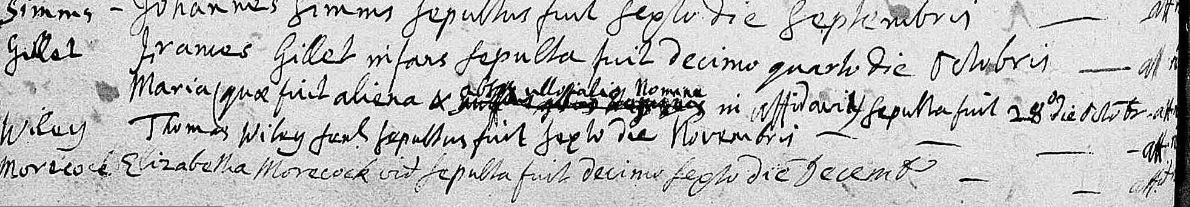 Simms - Johannes Simms sepultus fuit sexto die Septembris — aff
Gillet Frances Gillet infans sepulta fuit decimo quarto die Octobris — aff
Maria (quæ fuit aliena & absq ullo alio Nomine in Affidavit) sepulta fuit 28º die Octobr - aff
Wiley Thomas Wiley senr sepultus fuit sexto die Novembris — — - aff
Morecock Elizabetha Morecock vid sepulta fuit decimo sexto die Decemb — — affid